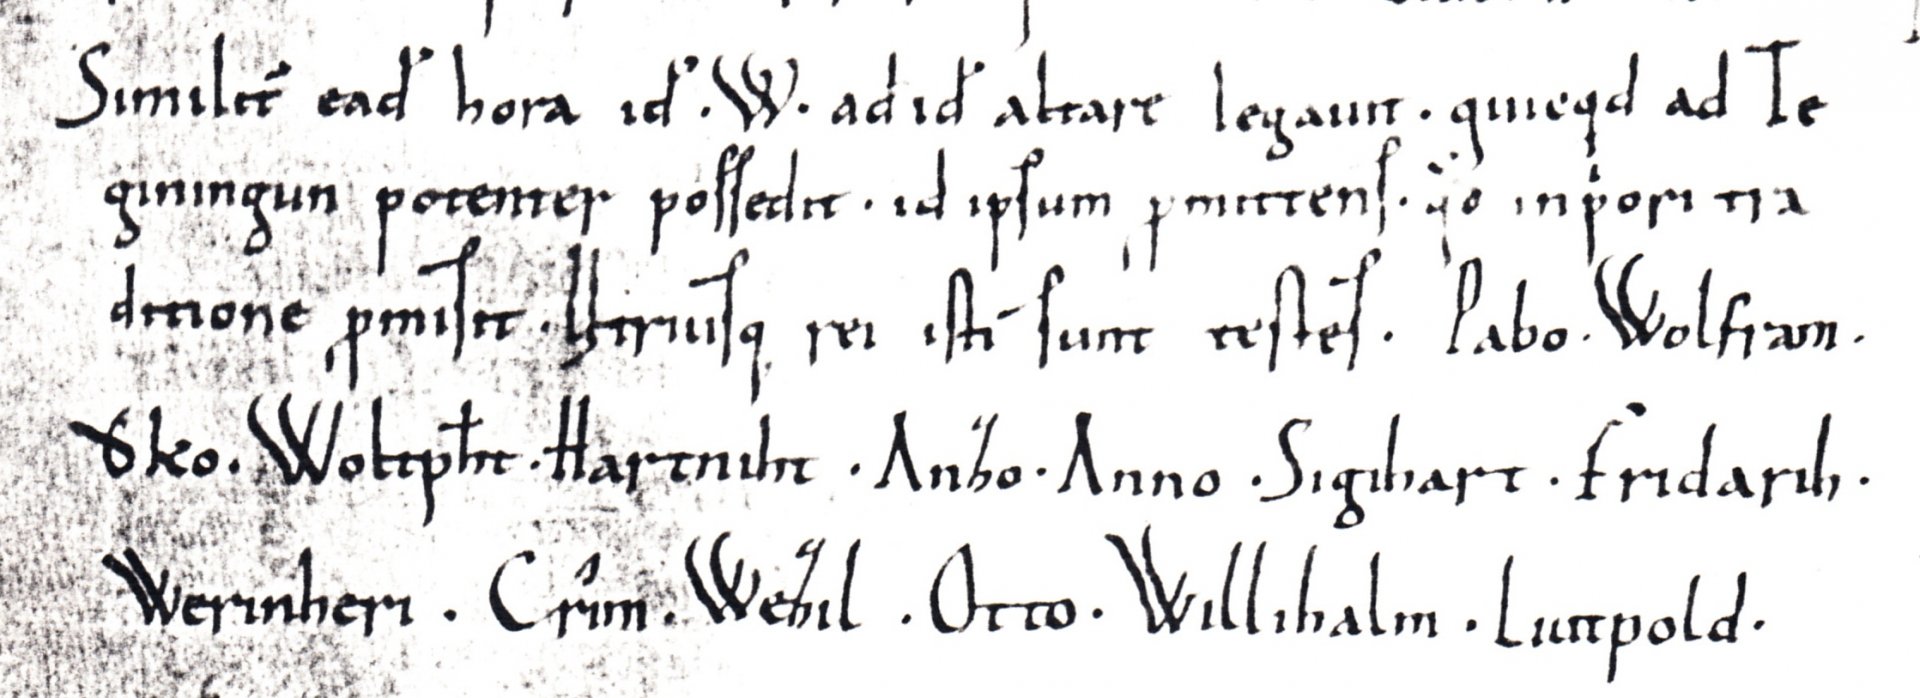 Similit̄ ead̄ hora id̄ · W · ad id̄ altare legauit · quicq̇d ad Te
giningun potenter possedit · id ipsum ꝑmittens · q̇o in p̍ori tra
ditione ꝑmisit · Utriusq rei isti sunt testes · Pabo · Wolfram ·
Ôko · Woltꝑht · Hartniht · Anͣho · Anno · Sigihart · Fridarih ·
Werinheri · Crim · Weͣhil · Otto · Willihalm · Luitpold ·